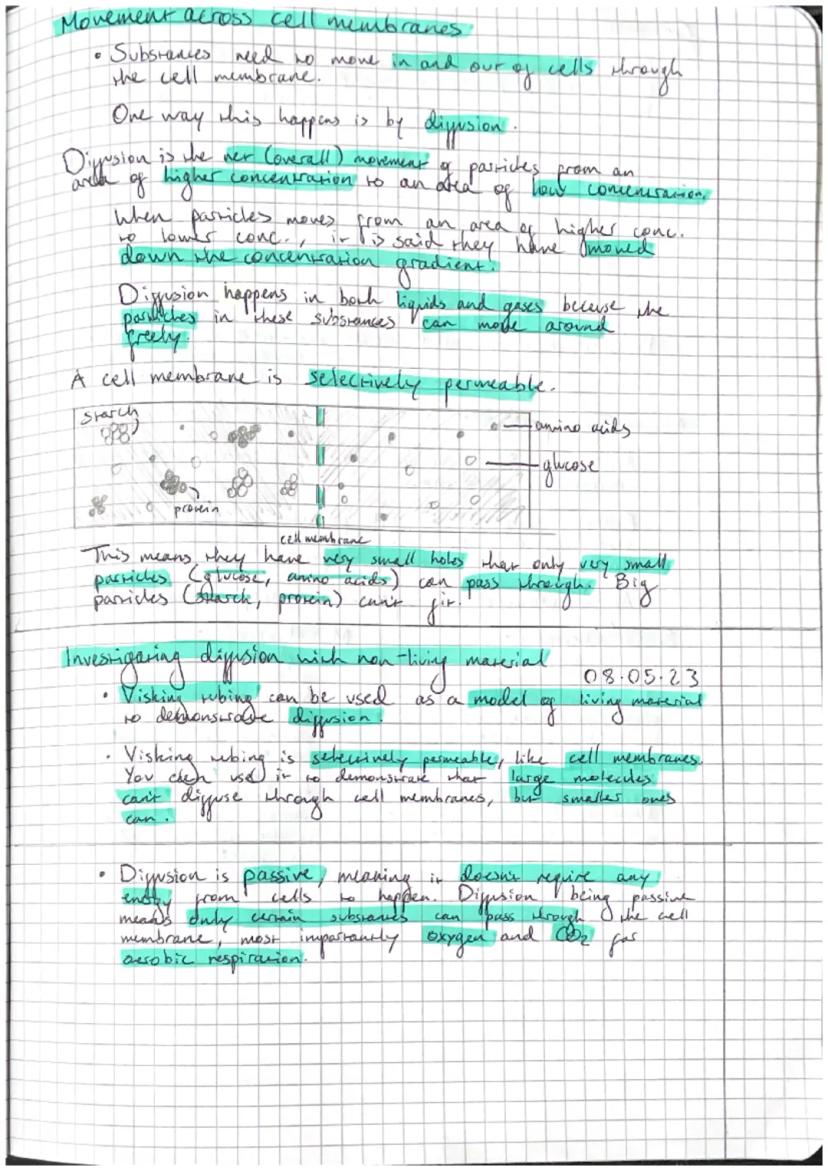 Movement across cell membranes
• Substances need to move in and out of cells through
the cell membrane.
One way this happens is by diffusion.
Diffusion is the net (overall) movement of particles from an
area of higher concentration to an area of low concentration.
When particles moves from an area of higher conc.
to lower conc., it is said they have moved
down the concentration gradient.
Diffusion happens in both liquids and gases because the
particles in these substances can move around
freely.
A cell membrane is selectively permeable.
starch
amino acids
glucose
protein
cell membrane
This means they have very small holes that only very small
particles (glucose, amino acids) can pass through. Big
particles (starch, protein) can't fit.
Investigating diffusion with non-living material
08.05.23
• Visking tubing can be used as a model of living material
to demonstrate diffusion.
• Visking tubing is selectively permeable, like cell membranes.
You can use it to demonstrate that large molecules
can't diffuse through cell membranes, but smaller ones
can.
• Diffusion is passive, meaning it doesn't require any
energy from cells to happen. Diffusion being passive
means only certain substances can pass through the cell
membrane, most importantly oxygen and CO₂ for
aerobic respiration.